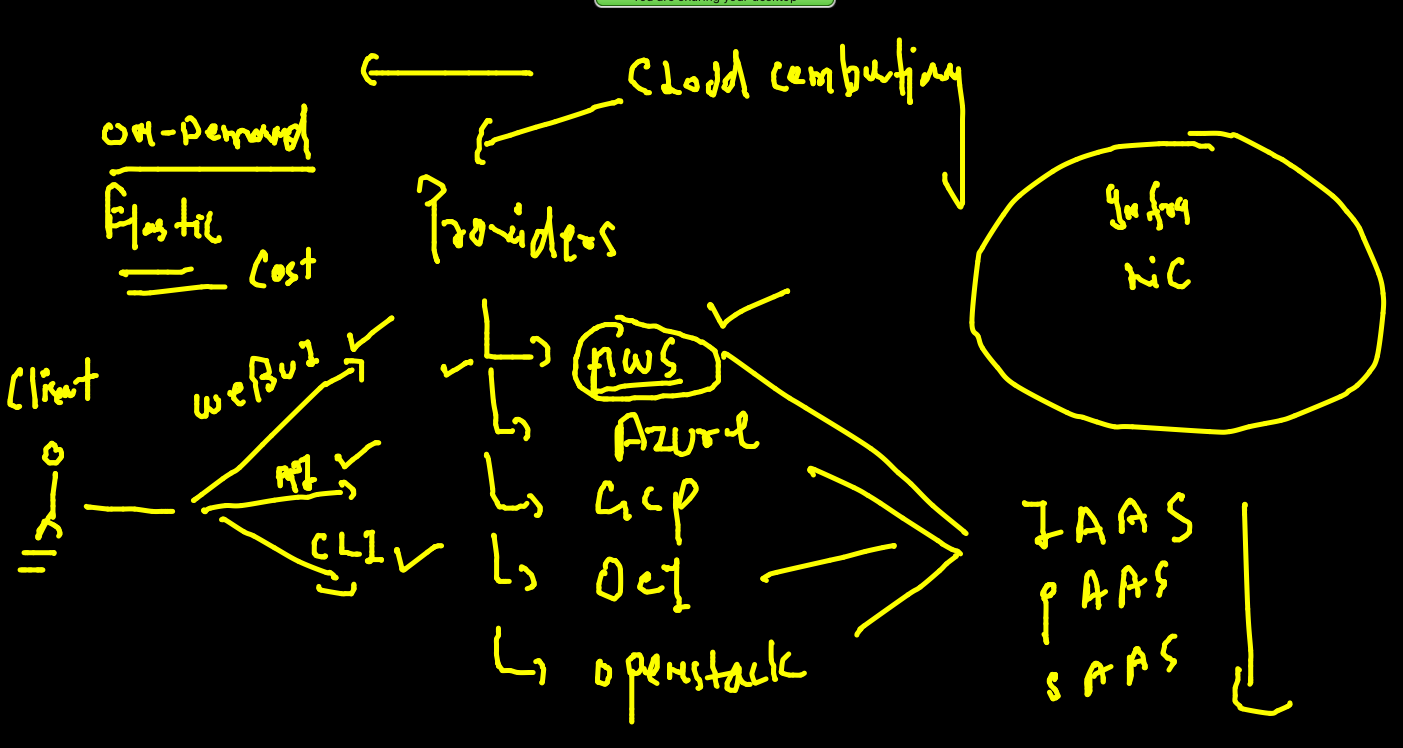 You are sharing your desktop
Cloud computing
ON-Demand
Elastic
Cost
Providers
Infra
NIC
Client
WeBUI
API
CLI
AWS
Azure
GCP
OCI
openstack
IAAS
PAAS
SAAS